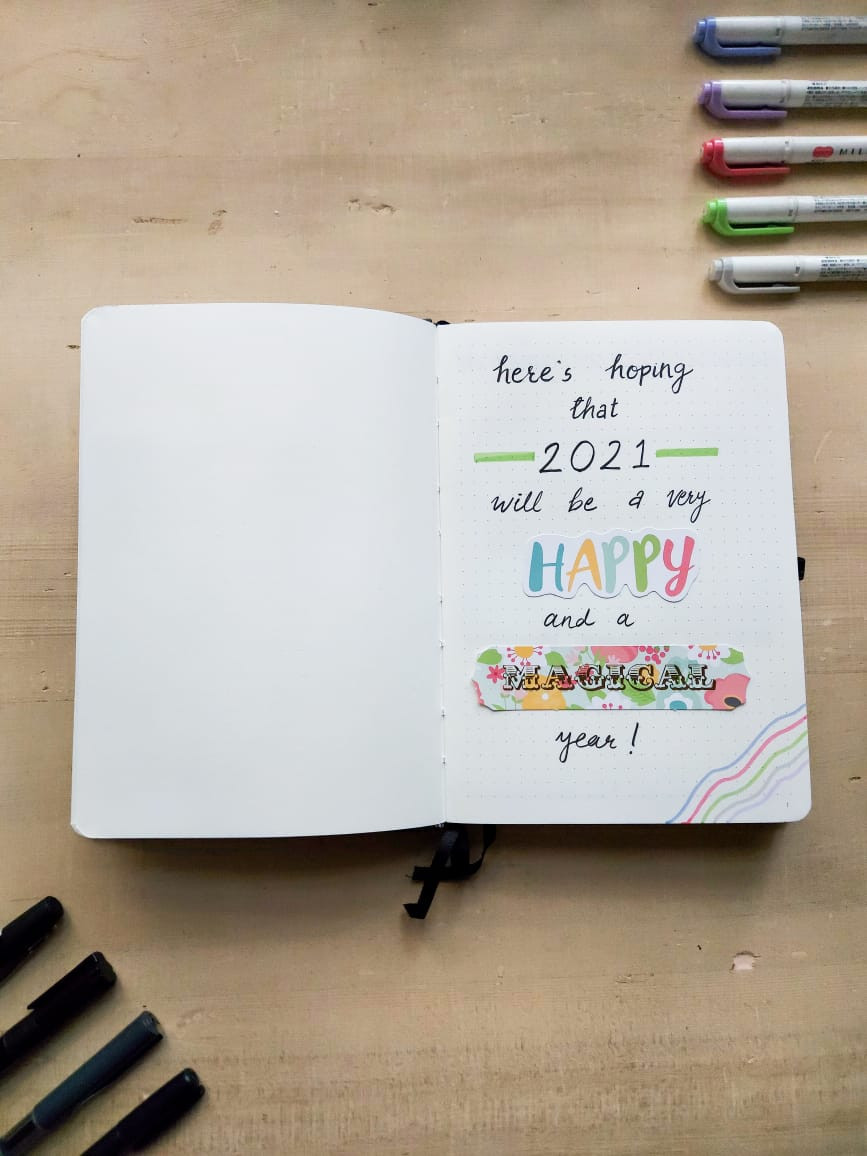 here's hoping
that
2021
will be a very
HAPPY
and a
MAGICAL
year!
MIL
1